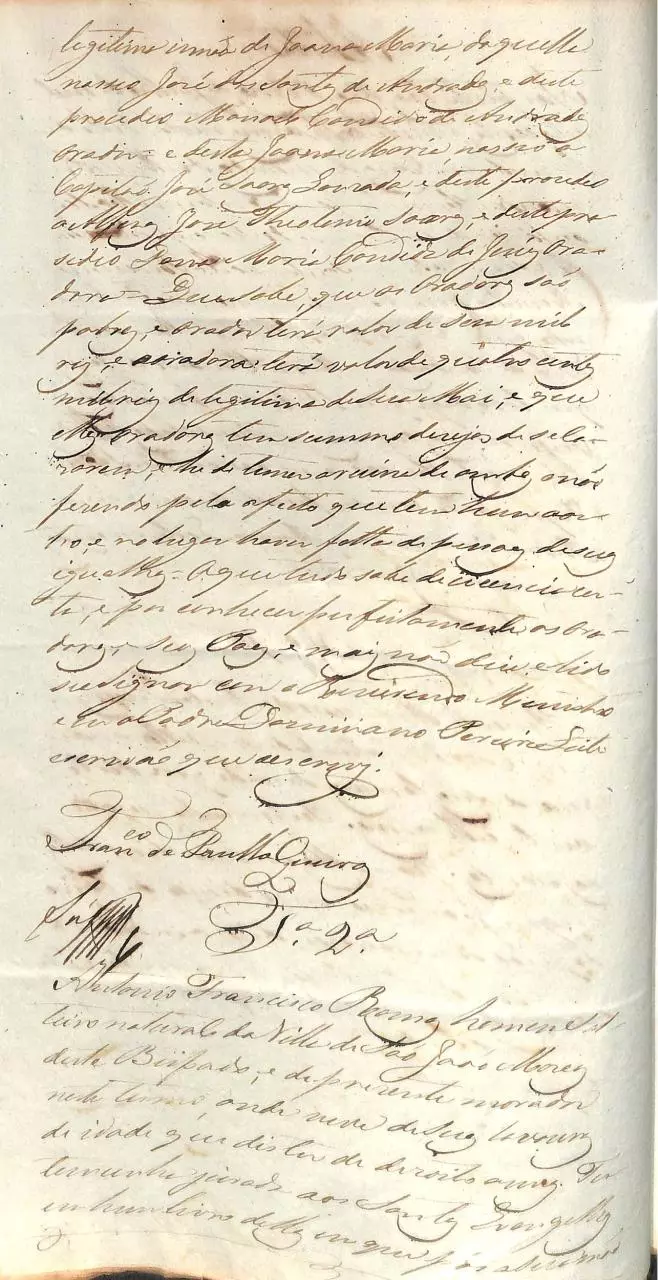 legitima irmã de Joana Maria, daquella
nasceo José dos Santos de Andrade, e deste
procedeo Manoel Candido de Andrade
Orador = e desta Joana Maria, nasceo o
Capitão José Soares Lourada, e deste procedeo
o Alferes José Theotonio Soares, e deste pro
sedeo Dona Maria Candida de Jesus Ora-
dora = Que sabe, que os Oradores são
pobres, e orador terá valor de seu mil
reis, e a oradora terá valor de quatro centos
mil reis de legitima de sua Mai, e que
elles Oradores tem summo dezejo de se ca-
zarem, e he de temer a ruina de ambos não
fazendo pelo afecto que tem hum ao ou-
tro, e no lugar haver falta de pessoas de sua
igualha = O que tudo sabe de siencia cer-
ta, e por conhecer perfeitamente os Ora-
dores, e seus Pays, e mais não dice, e lido
se asignou com o Reverendo Ministro
e eu o Padre Damiano Pereira Leite
escrivão que o escrevi.
Fran.co de Paulla
T.a 2.a
Antonio Francisco Ramos homem Sol-
teiro natural da Villa de São José
deste Bispado, e de prezente morador
neste termo, onde vive de suas lavouras
de idade que disse ter de dezoito annos Tes
temunha jurada aos Santos Evangelhos
em hum livro delles em que pôs a sua mão